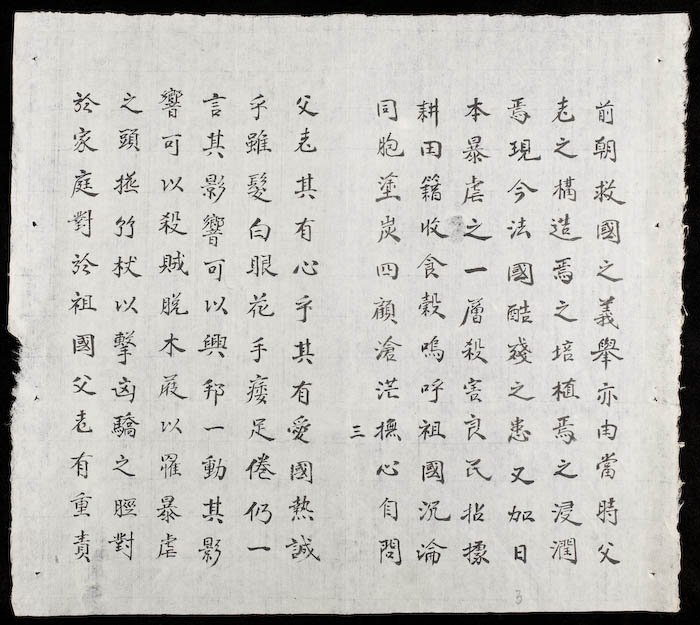 前朝救國之義舉亦由當時父
老之構造焉之培植焉之浸潤
焉現今法國酷殘之患又加日
本暴虐之一層殺害良民拈據
耕田籍收食穀嗚呼祖國沉淪
同胞塗炭四顧滄茫撫心自問
三
父老其有心乎其有愛國熱誠
乎雖髮白眼花手痿足倦仍一
言其影響可以興邦一動其影
響可以殺賊脫木屐以擢暴虐
之頭搖竹杖以擊凶驕之脛對
於家庭對於祖國父老有重責
3